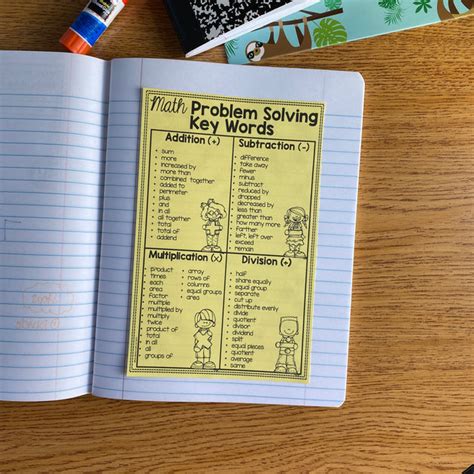 Math Problem Solving
Key Words
Addition (+)
sum
more
increased by
more than
combined together
added to
perimeter
plus
and
in all
all together
total
total of
addend
Subtraction (-)
difference
take away
fewer
minus
subtract
reduced by
dropped
decreased by
less than
greater than
how many more
farther
left, left over
exceed
remain
Multiplication (x)
product
times
each
area
factor
multiple
multiplied by
multiply
twice
product of
total
in all
all
groups of
array
rows of
columns
equal groups
area
Division (÷)
half
share equally
equal group
separate
cut up
distribute evenly
divide
quotient
divisor
dividend
split
equal pieces
quotient
average
same